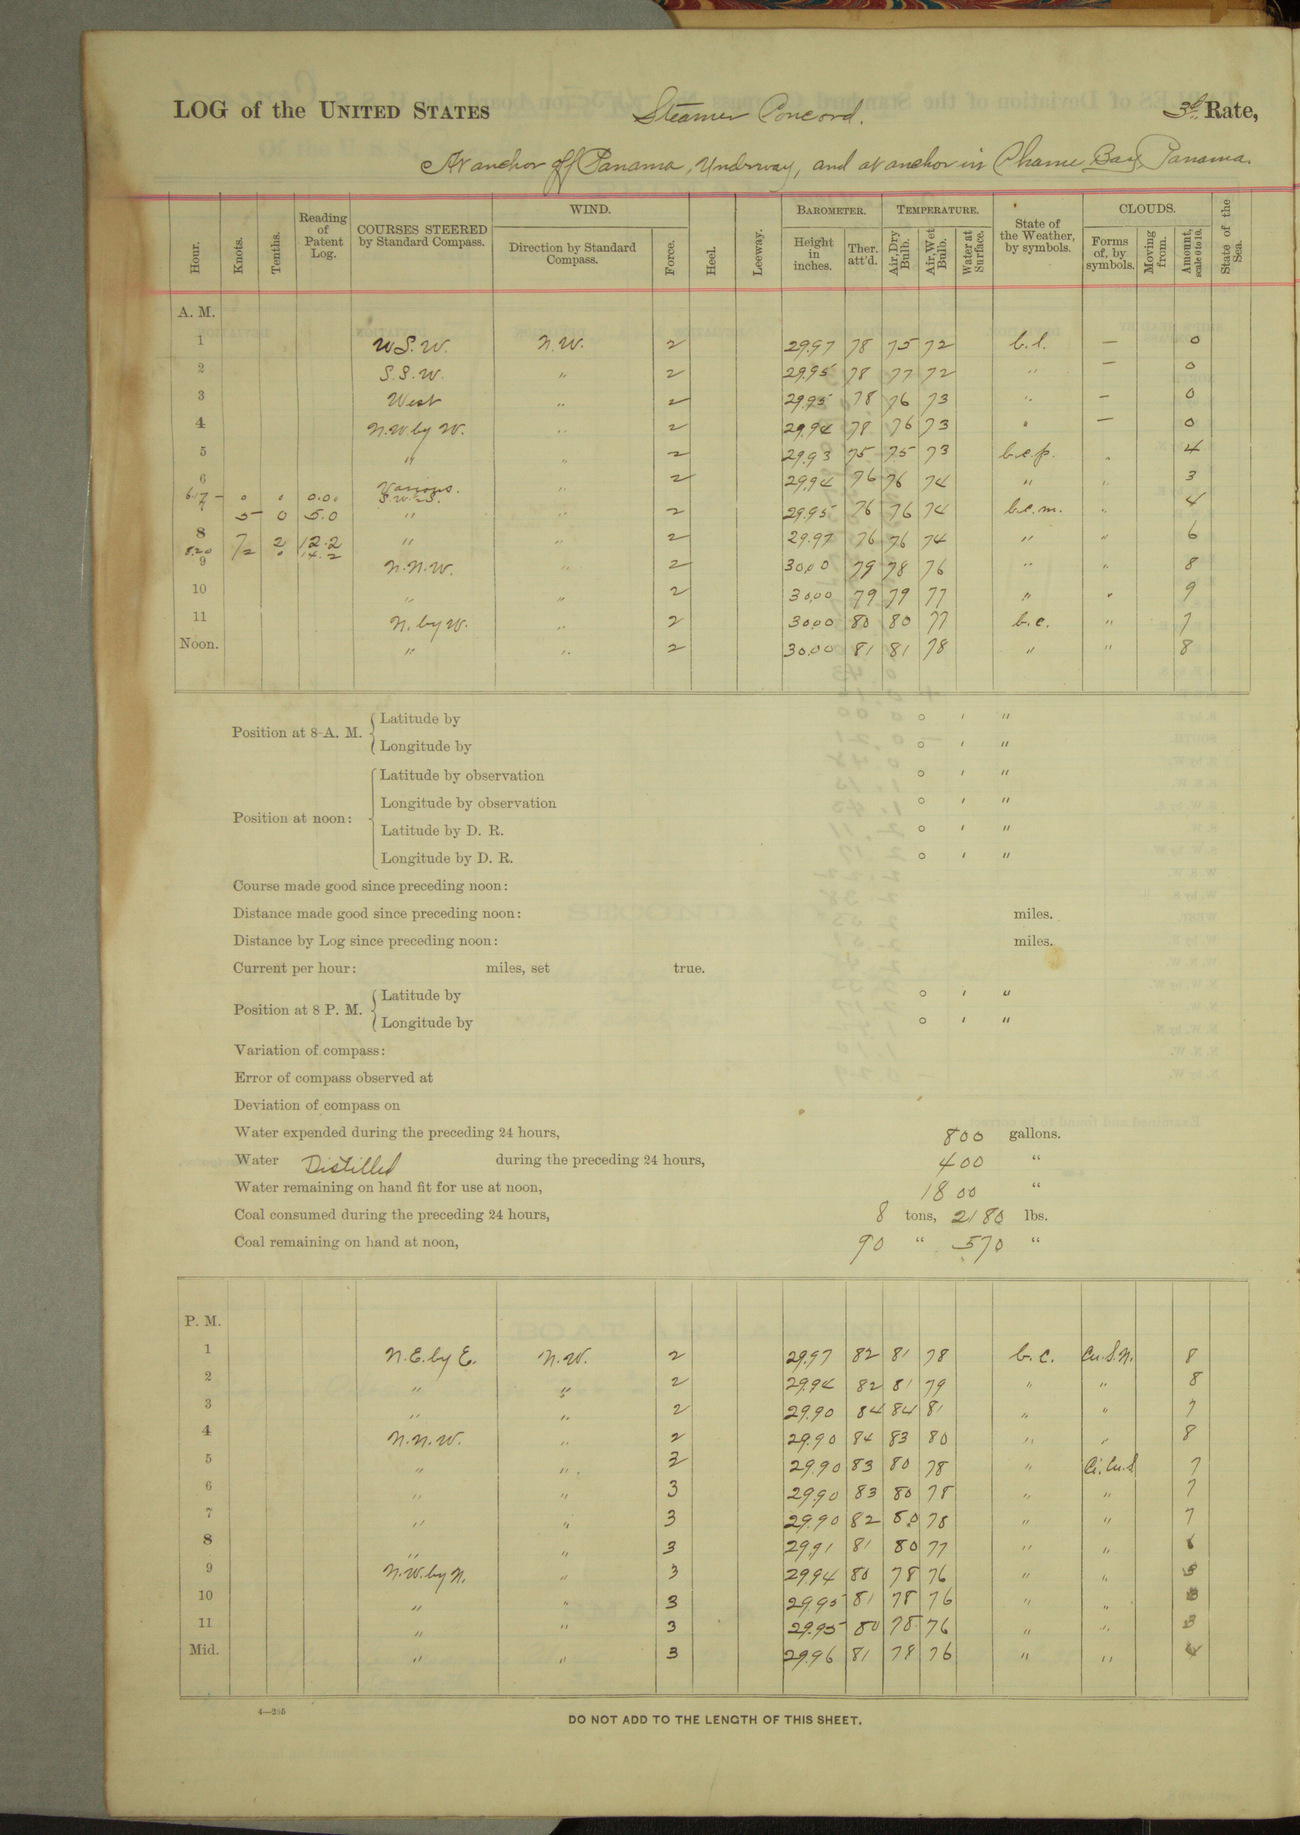 LOG of the UNITED STATES Steamer Concord. 3d Rate,
At anchor off Panama, Underway, and at anchor in Chame Bay, Panama.
Hour. Knots. Tenths. Reading of Patent Log. COURSES STEERED by Standard Compass. WIND. Direction by Standard Compass. Force. Heel. Leeway. BAROMETER. Height in inches. Ther. att'd. TEMPERATURE. Air, Dry Bulb. Air, Wet Bulb. Water at Surface. State of the Weather, by symbols. CLOUDS. Forms of, by symbols. Moving from. Amount, scale 0 to 10. State of the Sea.
A. M.
1 W.S.W. N.W. 2 29.97 78 75 72 b.l. — 0
2 S.S.W. " 2 29.95 78 77 72 " — 0
3 West " 2 29.95 78 76 73 " — 0
4 N.W. by W. " 2 29.94 78 76 73 " — 0
5 " " 2 29.93 75 75 73 b.c.p. " 4
6 Various. " 2 29.94 76 76 74 " 3
7 5 0 5.0 " " 2 29.95 76 76 74 b.c.m. " 4
8 7 2 12.2 " " 2 29.97 76 76 74 " " 6
8.20 2 0 14.2
9 N.N.W. " 2 30.00 79 78 76 " " 8
10 " " 2 30.00 79 79 77 " " 9
11 N. by W. " 2 30.00 80 80 77 b.c. " 7
Noon. " " 2 30.00 81 81 78 " " 8
Position at 8 A. M. Latitude by ° ' "
Longitude by ° ' "
Position at noon: Latitude by observation ° ' "
Longitude by observation ° ' "
Latitude by D. R. ° ' "
Longitude by D. R. ° ' "
Course made good since preceding noon:
Distance made good since preceding noon: miles.
Distance by Log since preceding noon: miles.
Current per hour: miles, set true.
Position at 8 P. M. Latitude by ° ' "
Longitude by ° ' "
Variation of compass:
Error of compass observed at
Deviation of compass on
Water expended during the preceding 24 hours, 800 gallons.
Water Distilled during the preceding 24 hours, 400 "
Water remaining on hand fit for use at noon, 1800 "
Coal consumed during the preceding 24 hours, 8 tons, 2180 lbs.
Coal remaining on hand at noon, 90 " 570 "
P. M.
1 N.E. by E. N.W. 2 29.97 82 81 78 b.c. Cu.S.N. 8
2 " " 2 29.94 82 81 79 " " 8
3 " " 2 29.90 84 84 81 " " 7
4 N.N.W. " 2 29.90 84 83 80 " " 8
5 " " 29.90 83 80 78 " Ci.Cu.S 7
6 " " 3 29.90 83 80 78 " " 7
7 " " 3 29.90 82 80 78 " " 7
8 " " 3 29.91 81 80 77 " "
9 N.W. by N. " 3 29.94 80 78 76 " "
10 " " 3 29.95 81 78 76 " "
11 " " 3 29.95 80 78 76 " " 3
Mid. " " 3 29.96 81 78 76 " " 4
4—295
DO NOT ADD TO THE LENGTH OF THIS SHEET.